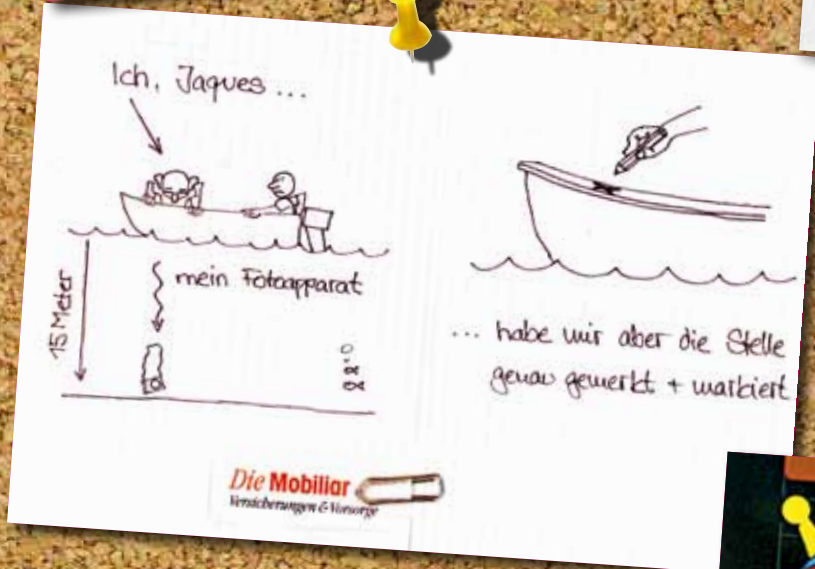 Ich, Jaques ...
mein Fotoapparat
15 Meter
... habe mir aber die Stelle
genau gemerkt + markiert
Die Mobiliar
Versicherungen & Vorsorge